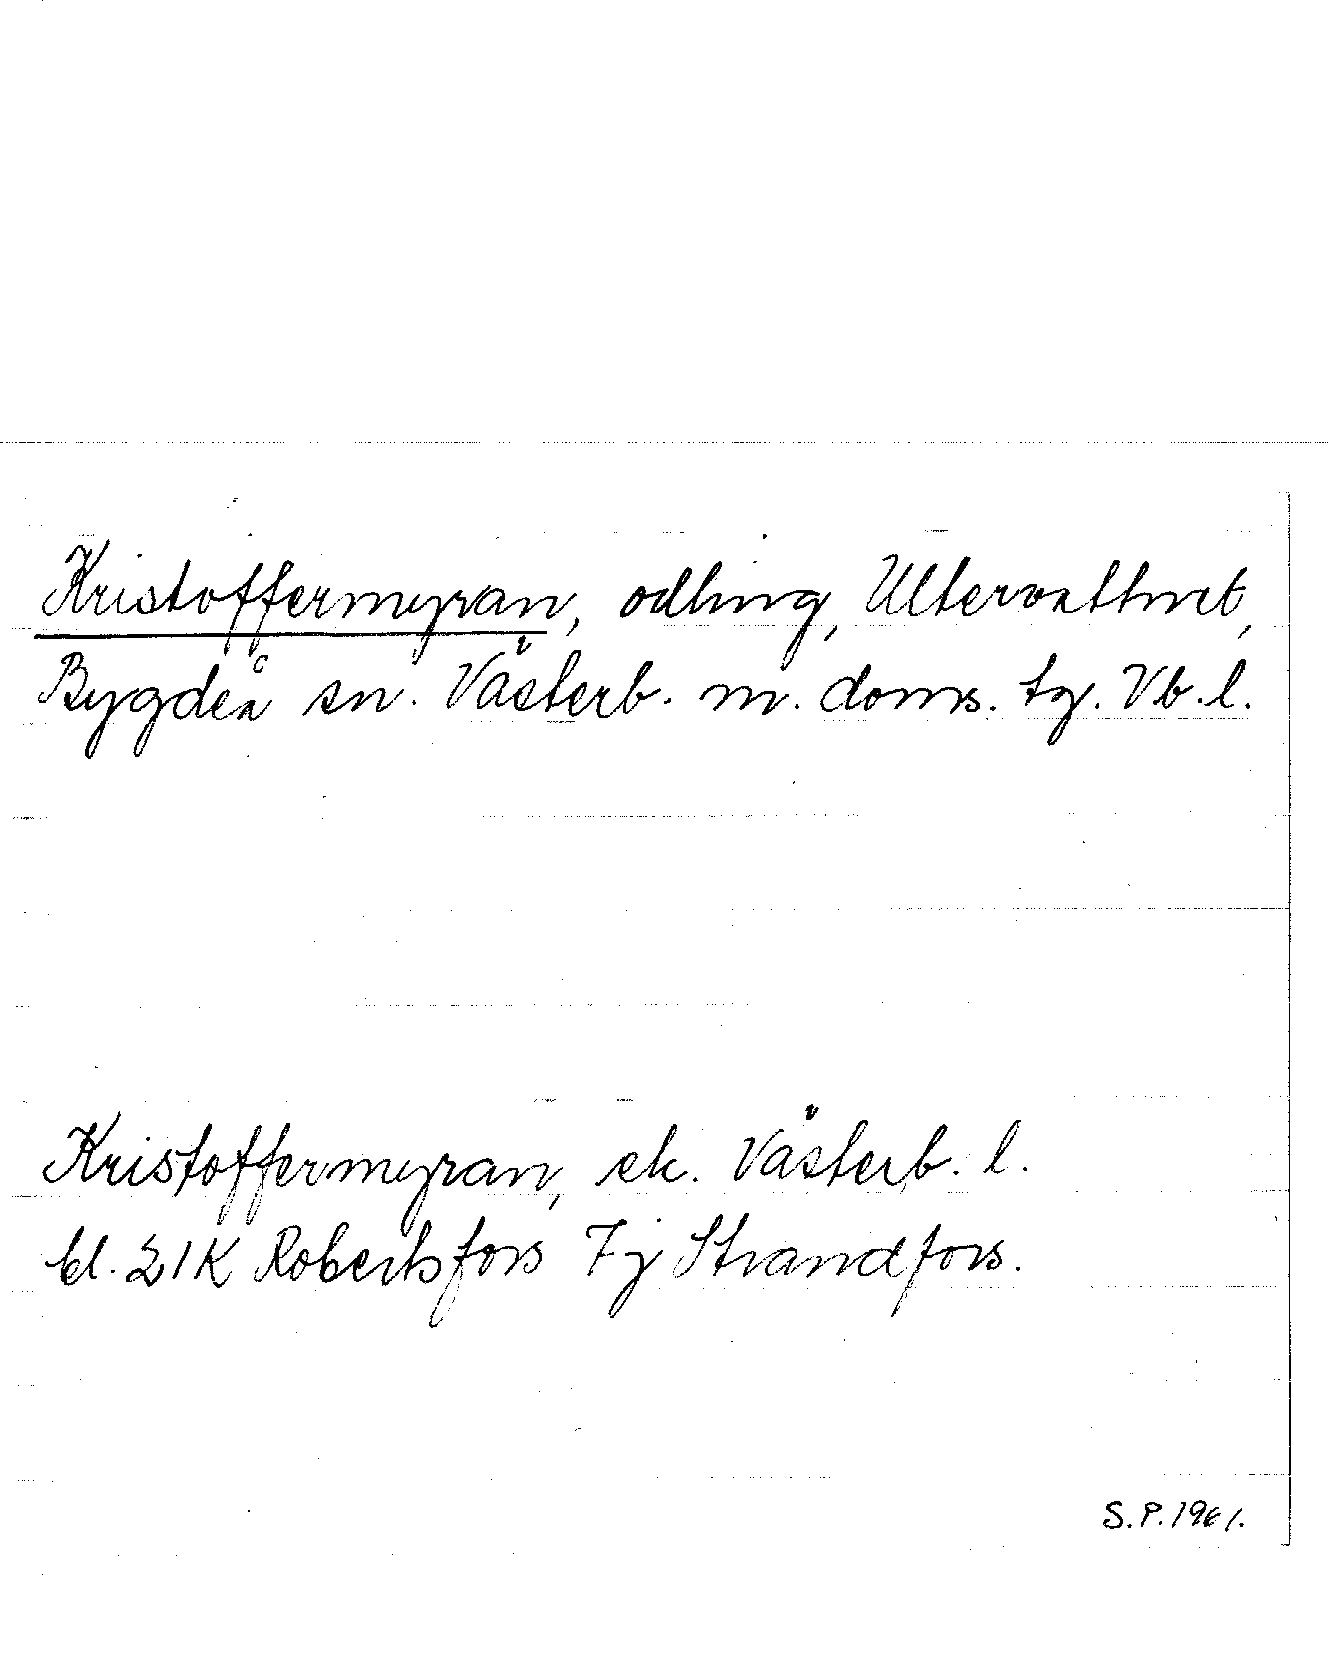 Kristoffermyran, odling, Ultervattnet,
Bygdeå sn. Västerb. m. doms. tg. Vb. l.
Kristoffermyran, ek. Västerb. l.
bl. 21K Robertsfors 7j Strandfors.
S.P. 1961.